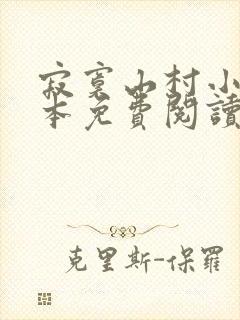 寂寞山村小
本免費閱讀
克里斯-保羅